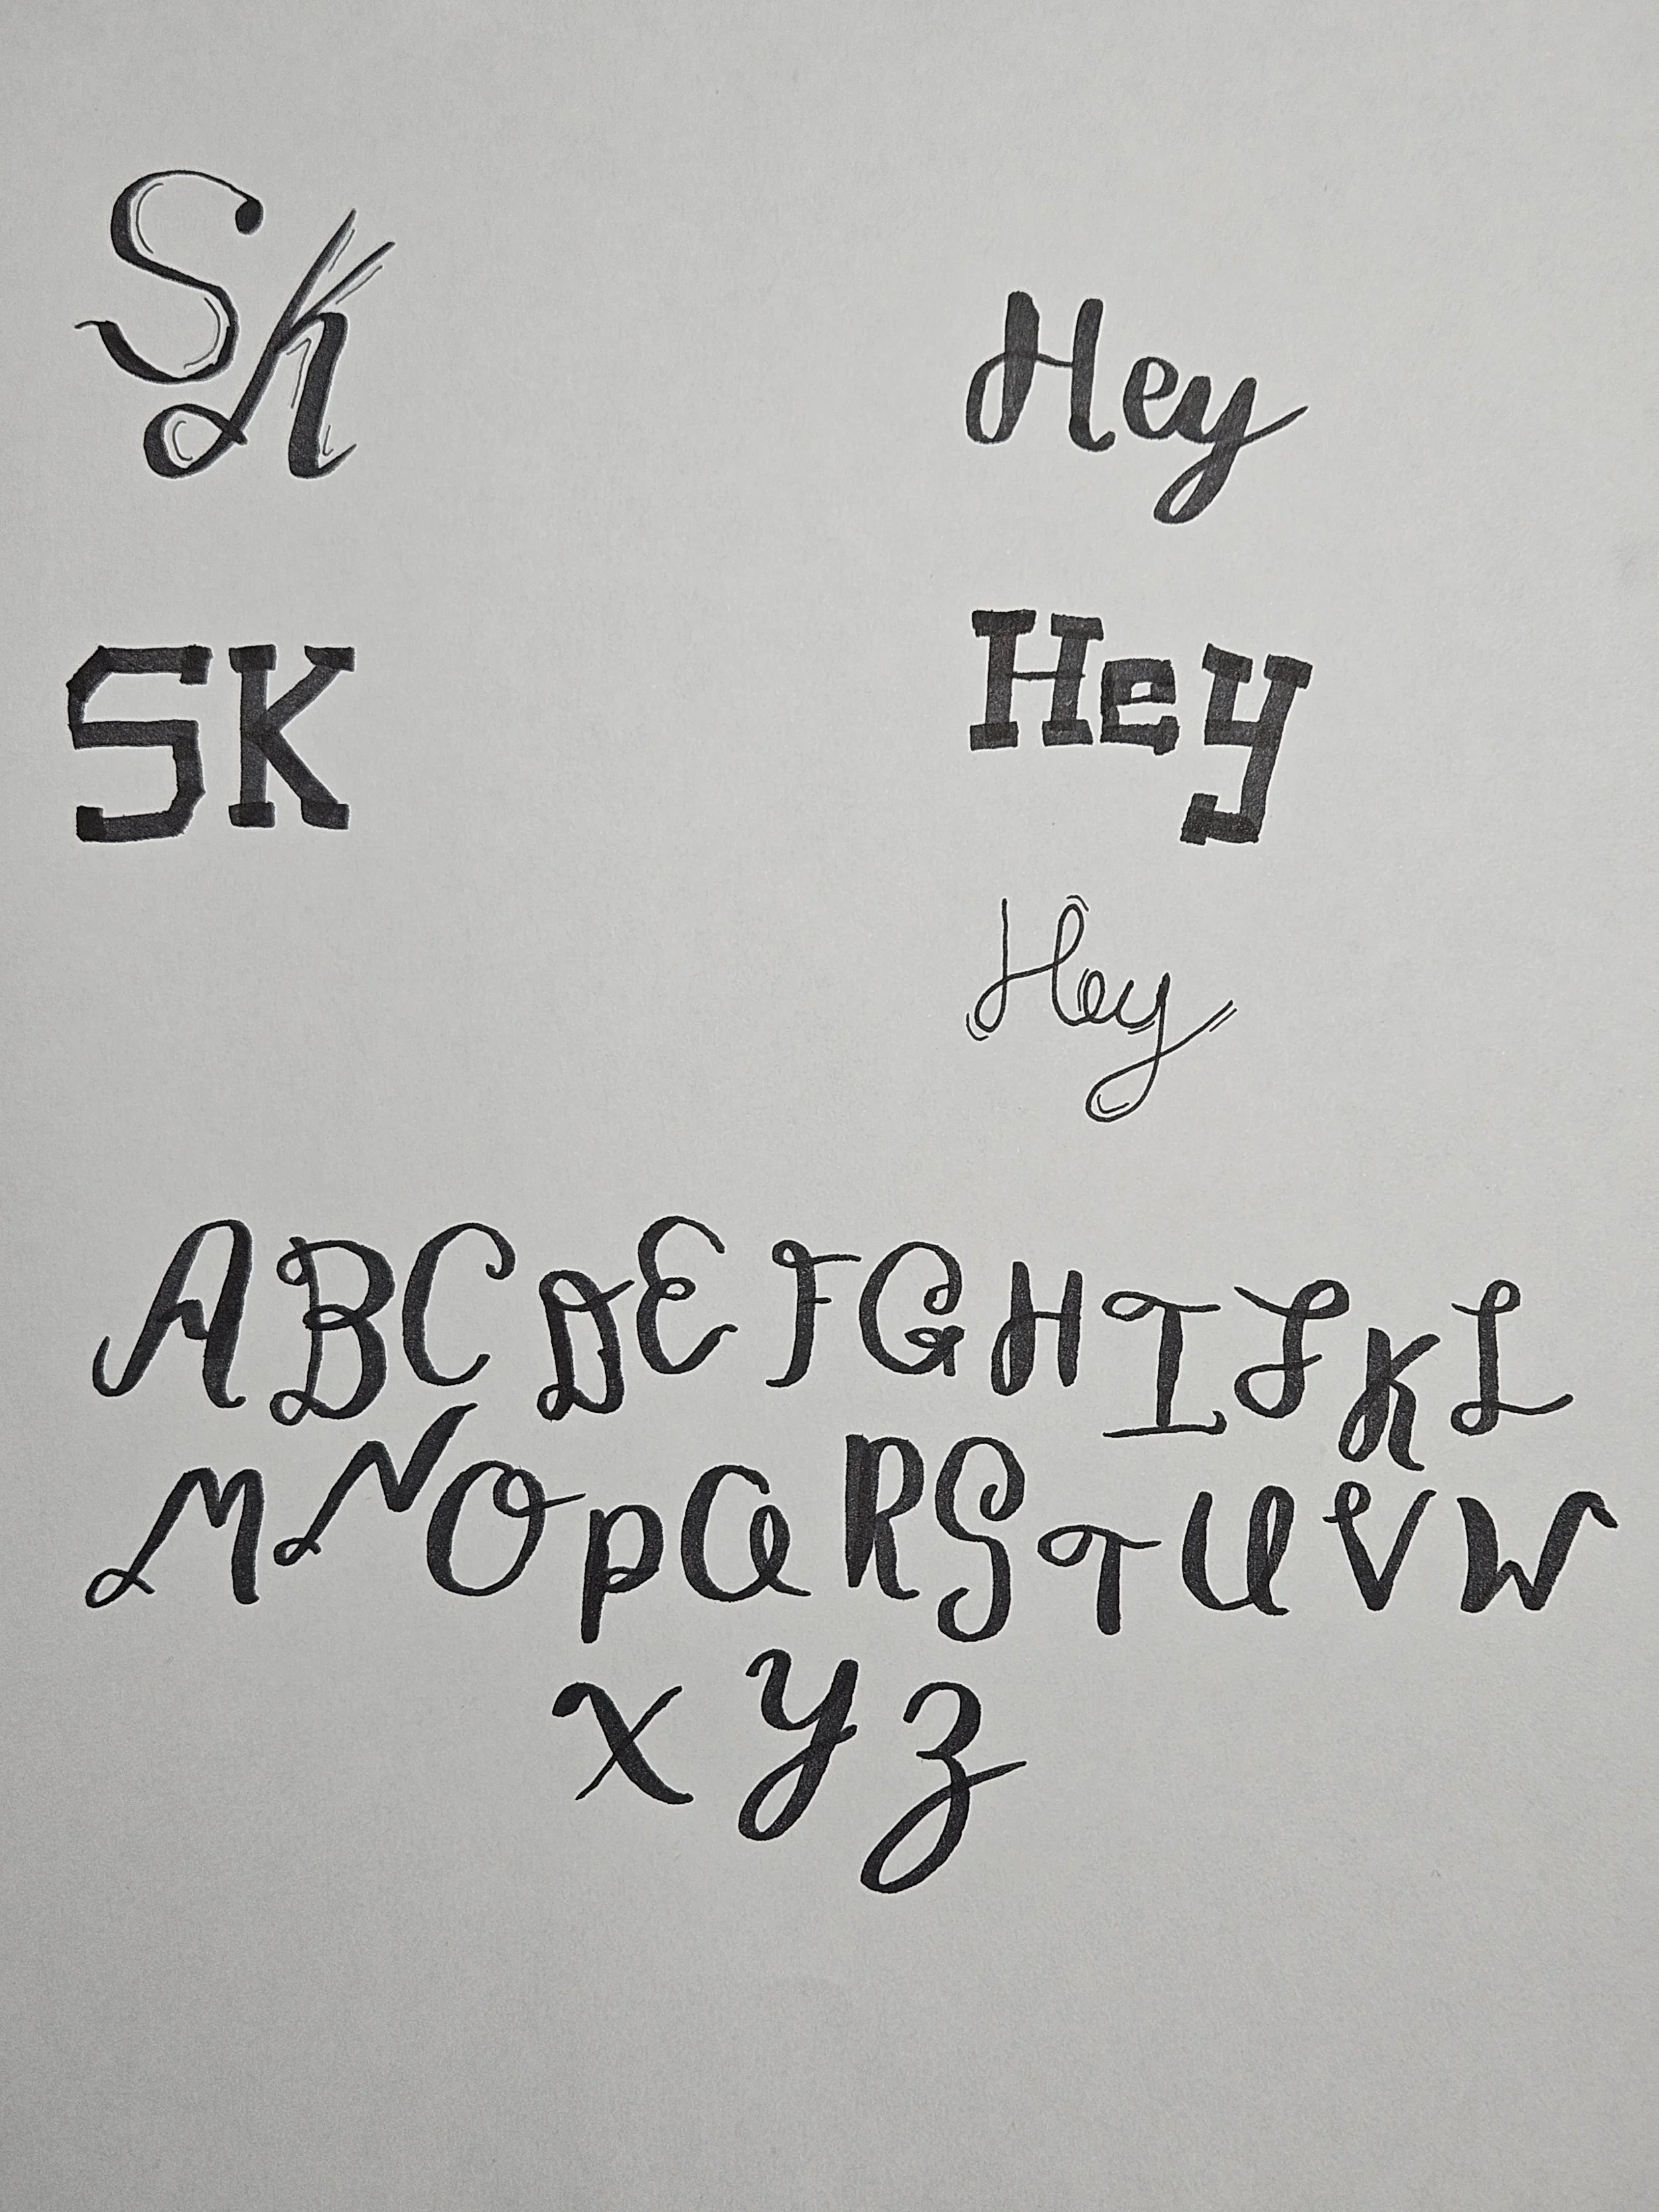 Sk
Hey
SK
Hey
Hey
A B C D E F G H I J K L
M N O P Q R S T U V W
X Y Z